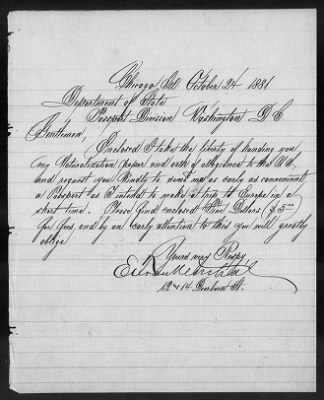 Chicago Ill October 24 1881
Department of State
Passport Division Washington D C
Gentlemen,
Enclosed I take the liberty of handing you
my Naturalization paper and oath of allegiance to the U.S.
and request you kindly to send me as early as convenient
a Passport as I intend to make a trip to Europe in a
short time. Please find enclosed Five Dollars ($5
for fees and by an early attention to this you will greatly
oblige
Yours very Respy
12 & 14 Dearborn St.